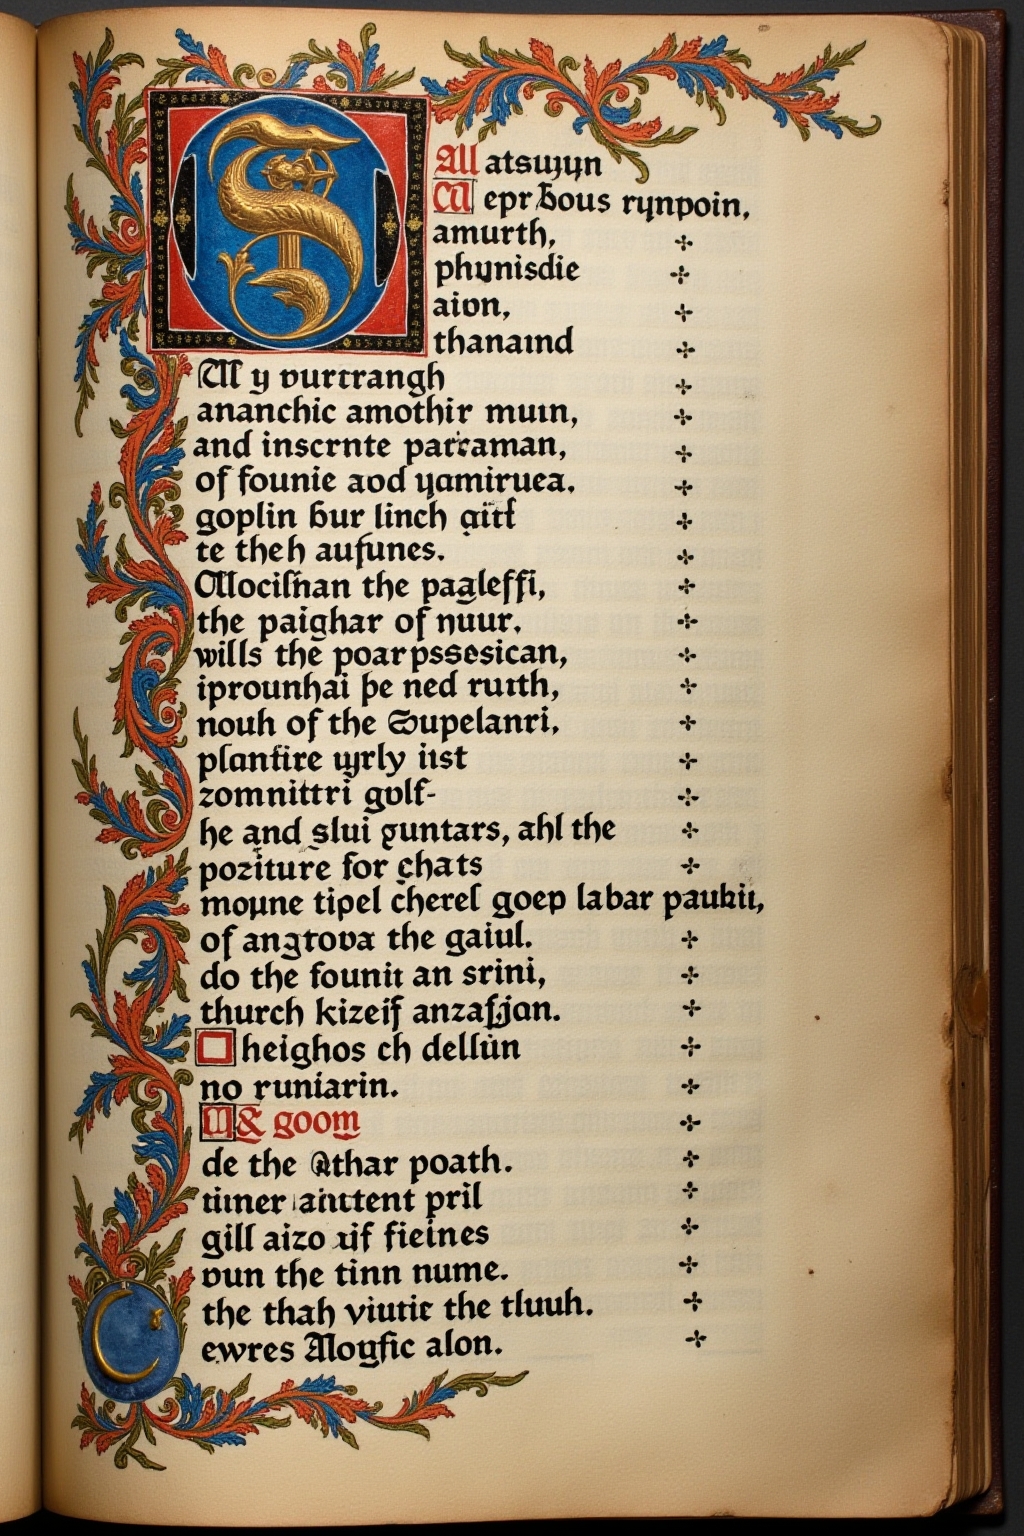 All atsuyyn
Ca epr bous rynpoin,
amurth,
phynisdie
aion,
thanaind
y ourtrangh
ananchic amothir muin,
and inscrnte parraman,
of founie aod yamiruea.
goplin bur linch
te theh aufunes.
the paaleffi,
the paighar of nuur.
wills the poarpssesican,
iprounhai þe ned ruth,
nouh of the Supelanri,
planfire yrly iist
zomnittri golf-
he and slui guntars, ahl the
poziture for chats
moµne tipel cherel goep labar
of angtova the gaiul.
do the founit an srini,
thurch kizeif
heighos ch dellun
no runiarin.
& goom
de the Athar poath.
timer aintent pril
gill aizo uif fieines
oun the tinn nume.
the thah viutie the tluuh.
ewres Aloyfic alon.